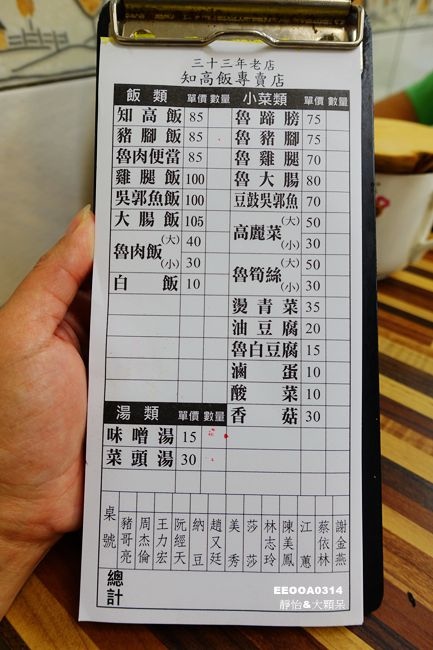 三十三年老店
知高飯專賣店
飯類 單價 數量
知高飯 85
豬腳飯 85
魯肉便當 85
雞腿飯 100
吳郭魚飯 100
大腸飯 105
魯肉飯 (大) 40
(小) 30
白飯 10
湯類 單價 數量
味噌湯 15
菜頭湯 30
小菜類 單價 數量
魯蹄膀 75
魯豬腳 75
魯雞腿 70
魯大腸 80
豆鼓吳郭魚 70
高麗菜 (大) 50
(小) 30
魯筍絲 (大) 50
(小) 30
燙青菜 35
油豆腐 20
魯白豆腐 15
滷蛋 10
酸菜 10
香菇 30
桌號
豬哥亮
周杰倫
王力宏
阮經天
納豆
趙又廷
美秀
莎莎
林志玲
陳美鳳
江蕙
蔡依林
謝金燕
總計
EEOOA0314
靜怡&大顆呆